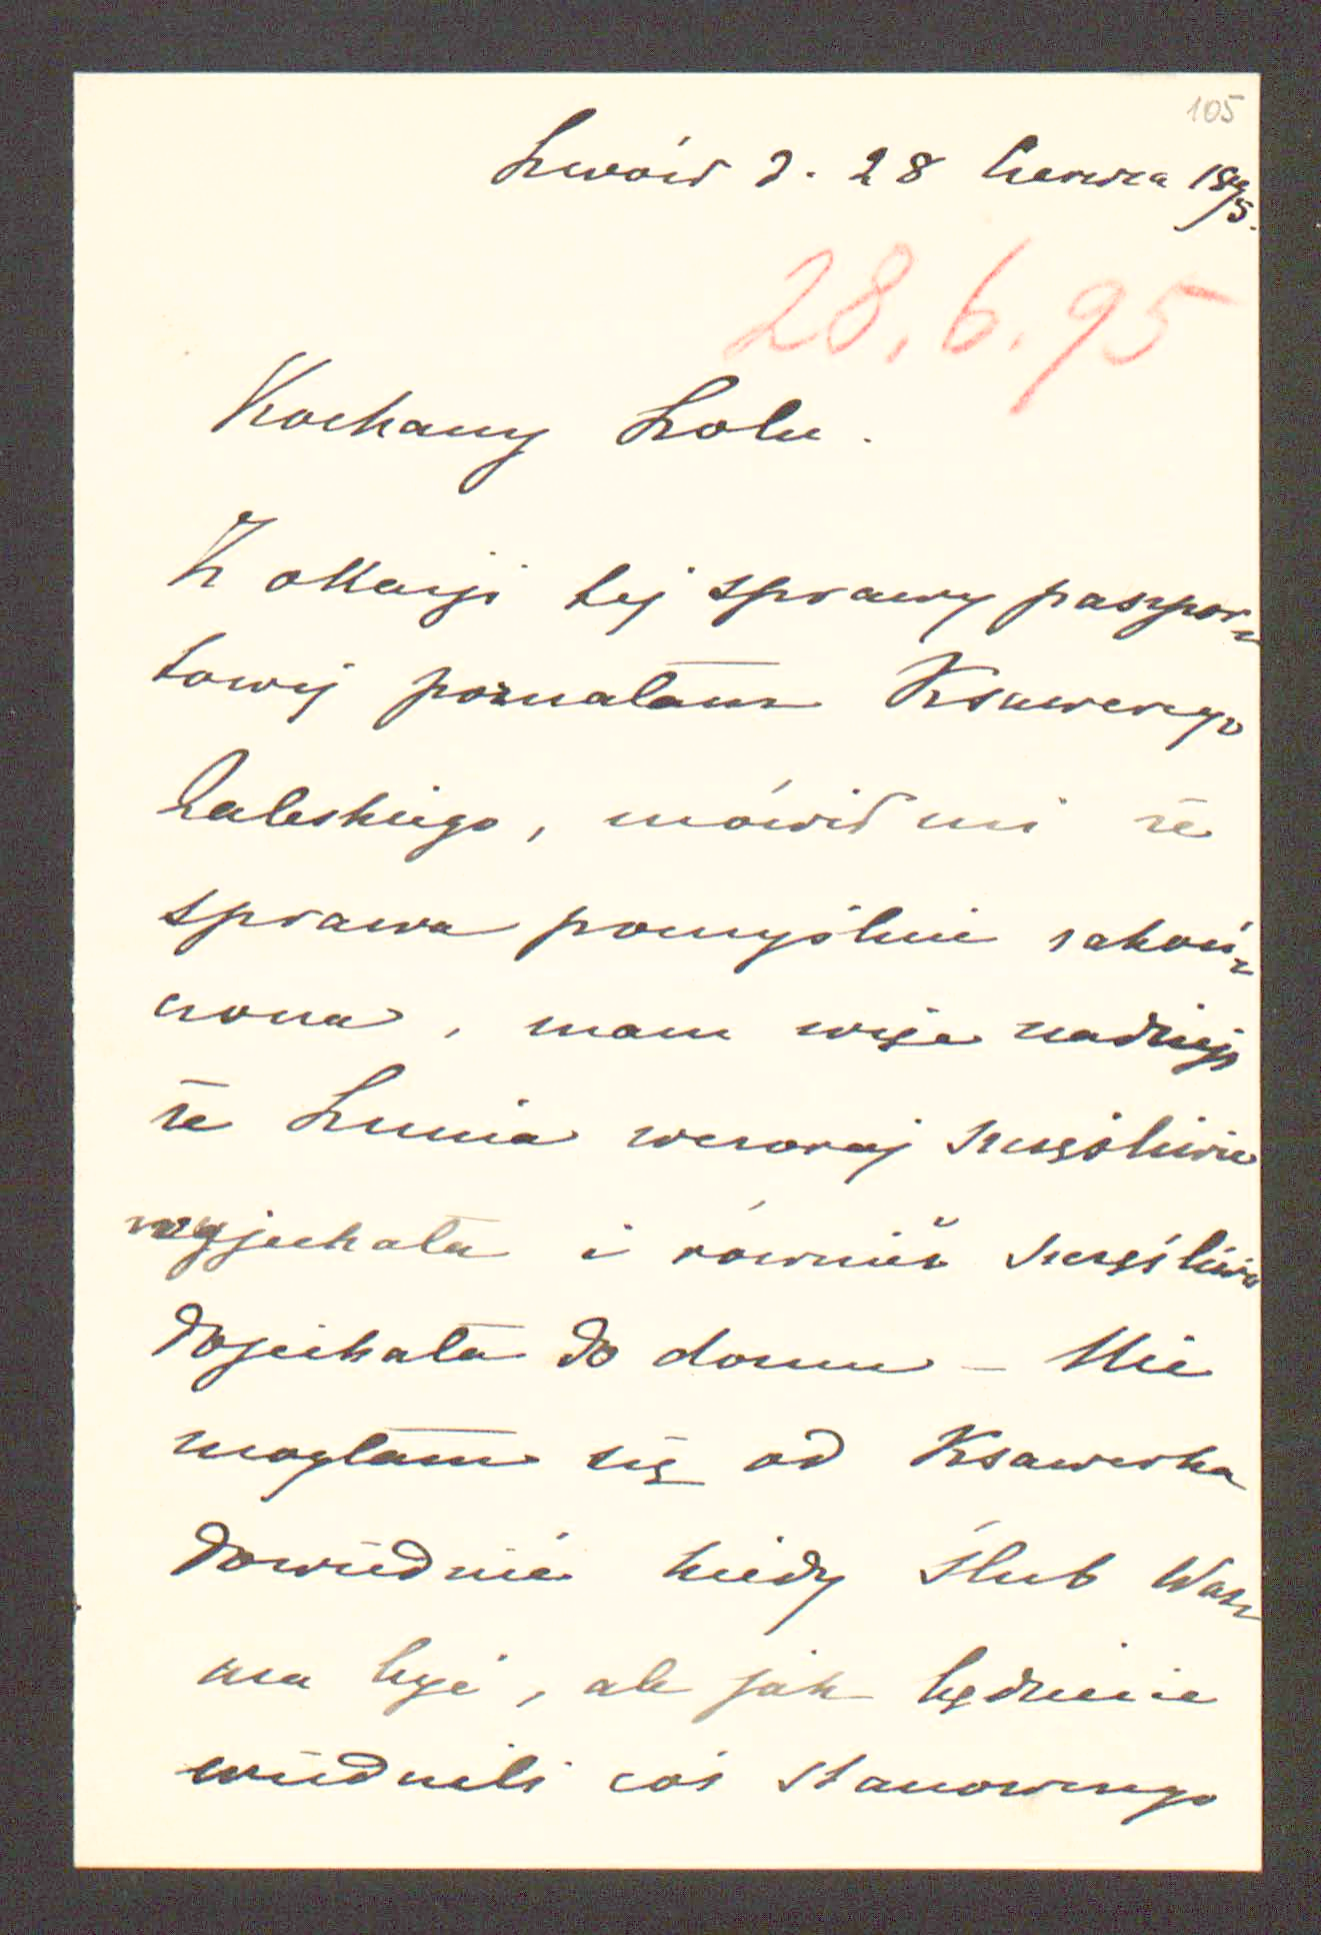 105
Lwów d. 28 Czerwca 189/5.
28.6.95
Kochany Lolu.
Z okazji tej sprawy paszpor-
towej poznałam Ksawerego
Zaleskiego, mówił mi że
sprawa pomyślnie zakoń-
czona, mam więc nadzieję
że Lunia wczoraj szczęśliwie
wyjechała i również szczęśliwie
dojechała do domu – Nie
mogłam się od Ksawerka
dowiedzieć kiedy ślub Wasz
ma być, ale jak będziecie
wiedzieli coś stanowczego